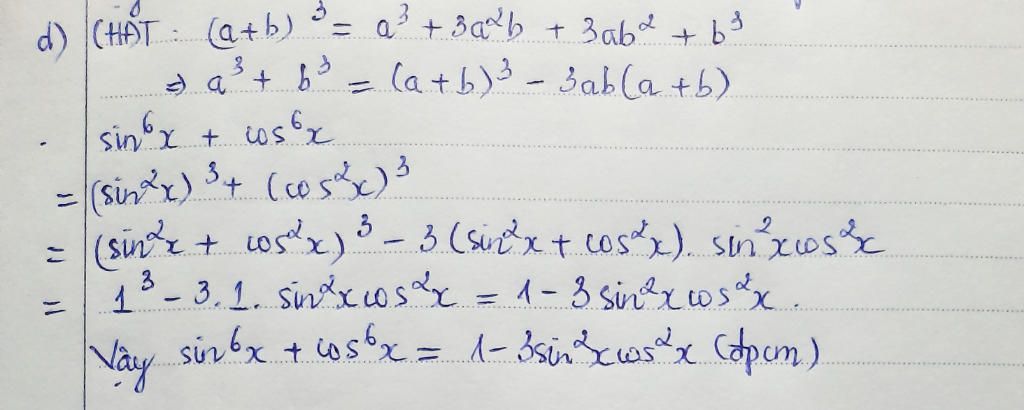 d) (HĐT : (a+b)³ = a³ + 3a²b + 3ab² + b³
⇒ a³ + b³ = (a+b)³ - 3ab(a+b)
. sin⁶x + cos⁶x
= (sin²x)³ + (cos²x)³
= (sin²x + cos²x)³ - 3(sin²x + cos²x). sin²xcos²x
= 1³ - 3.1. sin²xcos²x = 1 - 3sin²xcos²x.
Vậy sin⁶x + cos⁶x = 1 - 3sin²xcos²x (đpcm)